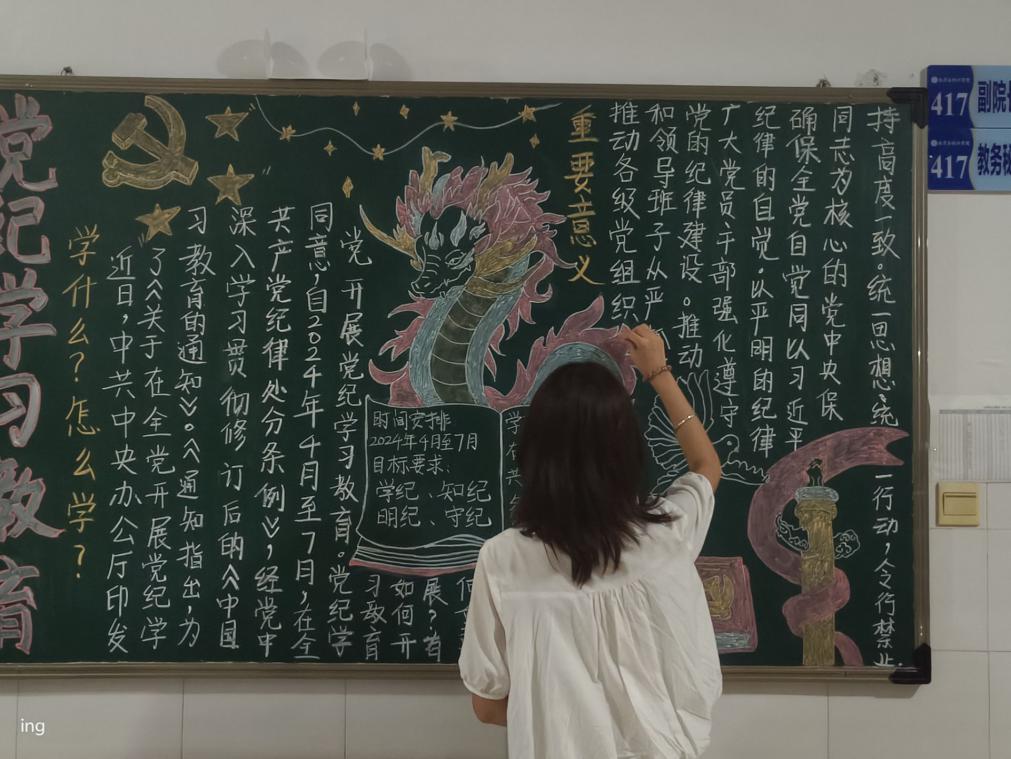 党纪学习教育
学什么？怎么学？
近日，中共中央办公厅印发
了《关于在全党开展党纪学
习教育的通知》。《通知指出，为
深入学习贯彻修订后的《中国
共产党纪律处分条例》，经党中
同意，自2024年4月至7月，在全
党开展党纪学习教育。党纪学
习教育
如何开
展？有
时间安排
2024年4月至7月
目标要求：
学纪、知纪
明纪、守纪
重要意义
推动各级党组织
和领导班子从严
党的纪律建设。推动
广大党员干部强化遵守
纪律的自觉。以严明的纪律
确保全党自觉同以习近平
同志为核心的党中央保
持高度一致。统一思想、统一行动，令行禁止.
417
副院长
417
教务秘
ing